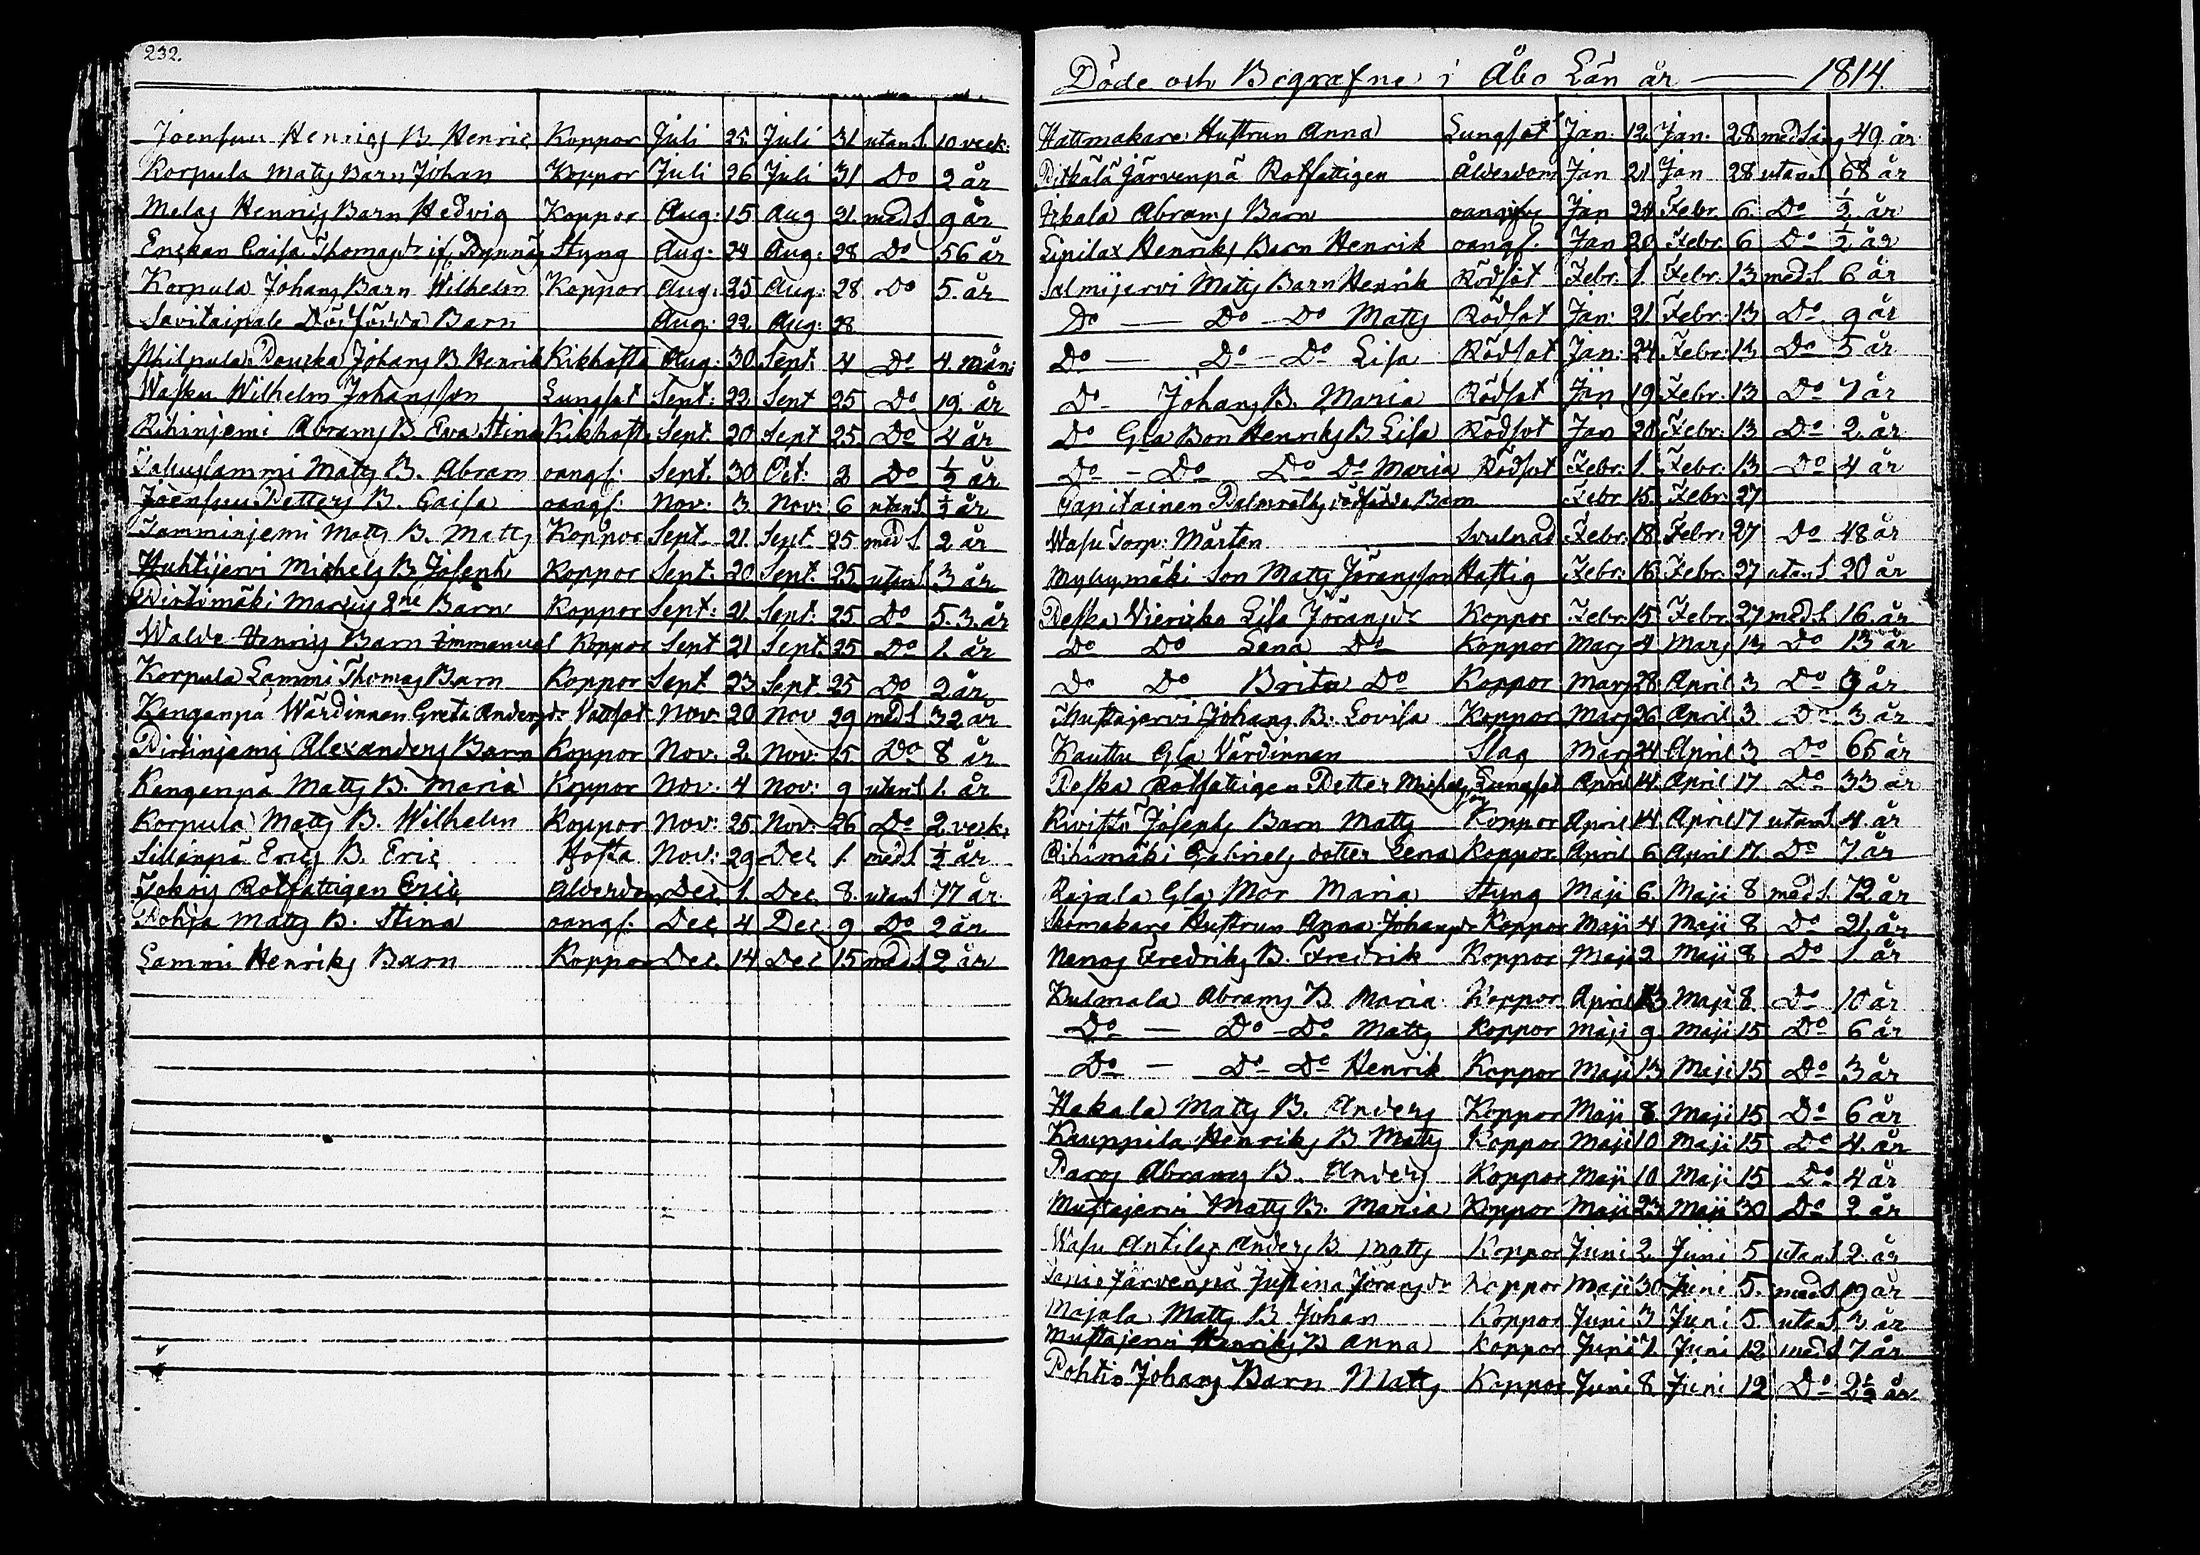 232.
Joensuu Henrics B. Henric Koppor Juli 25. Juli 31 utan S 10 veck:
Korpula Matts Barn Johan Koppor Juli 26 Juli 31 Do 2 år
Melas Henrics Barn Hedvig Koppor Aug: 15 Aug 21 med S 9 år
Caisa Thomasdr Styng Aug: 24 Aug: 28 Do 56 år
Korpula Johans Barn Wilhelm Koppor Aug: 25 Aug: 28 Do 5. år
Savitaipale Dödfödda Barn Aug: 22. Aug: 28
Philpula Johans B. Henrik Kikhosta Aug: 30 Sept. 4 Do 4. mån:
Wasku Wilhelm Johansson Lungsot Sept: 22. Sept 25 Do 19. år
Rihinjemi Abrams B. Eva Stina Kikhosta Sept. 20 Sept 25. Do 4 år
Matts B. Abram oangf: Sept. 30 Oct: 2 Do ½ år
Joensuu Petters B. Caisa oangf: Nov: 3. Nov: 6 utan S ½ år
Tamminjemi Matts B. Matts Koppor Sept. 21. Sept. 25 med S 2 år
Huhtijervi Michels B. Joseph Koppor Sept: 20 Sept. 25 utan S 3 år
2ne Barn Koppor Sept: 21. Sept: 25 Do 5. 3. år
Walde Henrics Barn Immanuel Koppor Sept 21 Sept. 25 Do 1. år
Korpula Lammi Thomas Barn Koppor Sept 23 Sept 25 Do 2 år
Kangenpä Wärdinnan Greta Andersdr Vattsot Nov: 20 Nov 29 med S 32 år
Alexanders Barn Koppor Nov. 2. Nov: 15 Do 8 år
Kangenpä Matts B. Maria Koppor Nov: 4 Nov: 9 utan S 1. år
Korpula Matts B. Wilhelm Koppor Nov: 25 Nov: 26 Do 2 veck:
Sillanpä Erics B. Eric Hosta Nov: 29 Dec 1. med S ½ år
Jokois Rotfattigen Eric Ålderdom Dec. 1. Dec. 8. utan S 77 år
Pohja Matts B. Stina oangf: Dec. 4 Dec 9 Do 2 år
Lammi Henriks Barn Koppor Dec. 14 Dec 15 med S 2 år
Döde och Begrafne i Åbo Län år — 1814.
Hattmakare Hustrun Anna Lungsot Jan: 12. Jan: 28 med sång 49 år
Pitkälä Järvenpä Rotfattigen Ålderdom Jan 21 Jan 28 utan S 68 år
Abrams Barn oangifv Jan 24 Febr. 6. Do ½ år
Henriks Barn Henrik oangf. Jan 20 Febr. 6 Do ½ år
Salmijervi Matts Barn Henrik Rödsot Febr. 1. Febr. 13 med S. 6 år
Do — Do Do Matts Rödsot Jan: 21 Febr. 13 Do 9 år
Do — Do Do Lisa Rödsot Jan: 24 Febr. 13 Do 5 år
Do Johans B. Maria Rödsot Jan 19 Febr: 13 Do 7 år
Do Gla Bon Henriks B. Lisa Rödsot Jan 28 Febr: 13 Do 2. år
Do - Do Do Do Maria Rödsot Febr: 1. Febr: 13 Do 4 år
Capitainen dödfödda Barn Febr 15 Febr: 27
Wasu Torp: Mårten Febr: 18 Febr: 27 Do 48 år
Myllymäki Son Matts Jöransson Hastig Febr: 16 Febr. 27 utan S 20 år
Peska Vierikka Lisa Jöransdr Koppor Febr: 15 Febr: 27 med S. 16. år
Do Do Lena Do Koppor Mars 4 Mars 13 Do 13 år
Do Do Brita Do Koppor Mars 28 April 3 Do 9 år
Mustajervi Johans B. Lovisa Koppor Mars 26 April 3 Do 3 år
Kauttu Gla Värdinnan Slag Mars 24 April 3 Do 65 år
Peska Rotfattigen Petter Michelsson Lungsot April 14. April 17 Do 33 år
Kivistö Josephs Barn Matts Koppor April 14. April 17 utan S 4. år
Riihimäki Gabriels dotter Lena Koppor April 6 April 17 Do 7 år
Rajala Gla Mor Maria Styng Maji 6. Maji 8 med S. 72 år
Skomakare Hustrun Anna Johansdr Koppor Maji 4 Maji 8 Do 21 år
Nanos Fredriks B. Fredrik Koppor Maji 2 Maji 8 Do 1 år
Kulmala Abrams B Maria Koppor April 13 Maji 8 Do 10 år
Do — Do Do Matts Koppor Maji 9. Maji 15 Do 6 år
Do — Do Do Henrik Koppor Maji 13 Maji 15 Do 3 år
Hakala Matts B. Anders Koppor Maji 8 Maji 15 Do 6 år
Kauppila Henriks B Matts Koppor Maji 10 Maji 15 Do 4. år
Abrams B. Anders Koppor Maji 10 Maji 15 Do 4 år
Mustajervi Matts B. Maria Koppor Maji 23 Maji 30 Do 2 år
Wasu Antilas Anders B. Matts Koppor Juni 2. Juni 5 utan S 2. år
Järvenpä Justina Jöransdr Koppor Maji 30 Juni 5. med S 19 år
Majala Matts B Johan Koppor Juni 3 Juni 5 utan S 3 år
Mustajervi Henriks B Anna Koppor Juni 7. Juni 12 med S 7 år
Pohtio Johans Barn Matts Koppor Juni 8 Juni 12 Do 2½ år